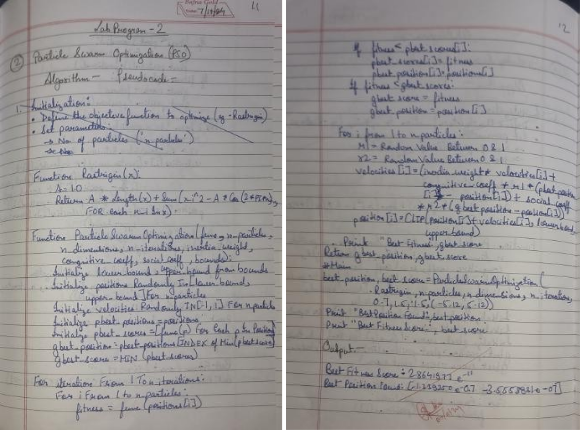 7/11/24
Lab Program - 2
Particle Swarm Optimization (PSO)
Algorithm - Pseudocode -
1. Initialization:
• Define the objective function to optimize (eg - Rastrigin)
• Set parameters:
→ No. of particles ('n-particles')
→ No
Function Rastrigin(x):
A = 10
Return A * length(x) + Sum(x_i^2 - A * Cos(2*PI*x_i)
FOR each x_i in x)
Function Particle Swarm Optimization (func, n-particles,
n-dimensions, n-iterations, inertia-weight,
cognitive coeff, social coeff, bounds):
Initialize lower bound, upper bound from bounds
Initialize positions Randomly In [lower bound,
upper-bound] For n particles
Initialize velocities Randomly IN [-1,1] For n particles
Initialize pbest positions = positions
Initialize pbest_scores = func(p) For Each p in Positions
gbest_position = pbest-positions [INDEX OF Min(pbest scores)]
gbest_score = MIN (pbest scores)
For iteration From 1 To n_iterations:
For i From 1 to n-particles:
fitness = func(positions[i])
12
If fitness < pbest scores[i]:
pbest scores[i] = fitness
pbest positions[i] = positions[i]
If fitness < gbest score:
gbest score = fitness
gbest position = position[i]
For i from 1 to n particles:
r1 = Random Value Between 0 & 1
r2 = Random Value Between 0 & 1
velocities [i] = (inertia weight * velocities[i] +
cognitive coeff * r1 * (pbest position
[i] - position[i]) + social coeff
* r2 * (gbest position - position[i])
position[i] = CLIP(position[i] + velocities[i], lower bound,
upper bound)
Print "Best Fitness", gbest score
Return gbest_position, gbest_score
# Main
best_position, best_score = Particle Swarm Optimization (
Rastrigin, n_particles, n_dimensions, n_iterations,
0.7, 1.5, 1.5, (-5.12, 5.12))
Print "Best Position found", best position
Print "Best Fitness Score:", best score
Output -
Best Fitness Score:
Best Position found: